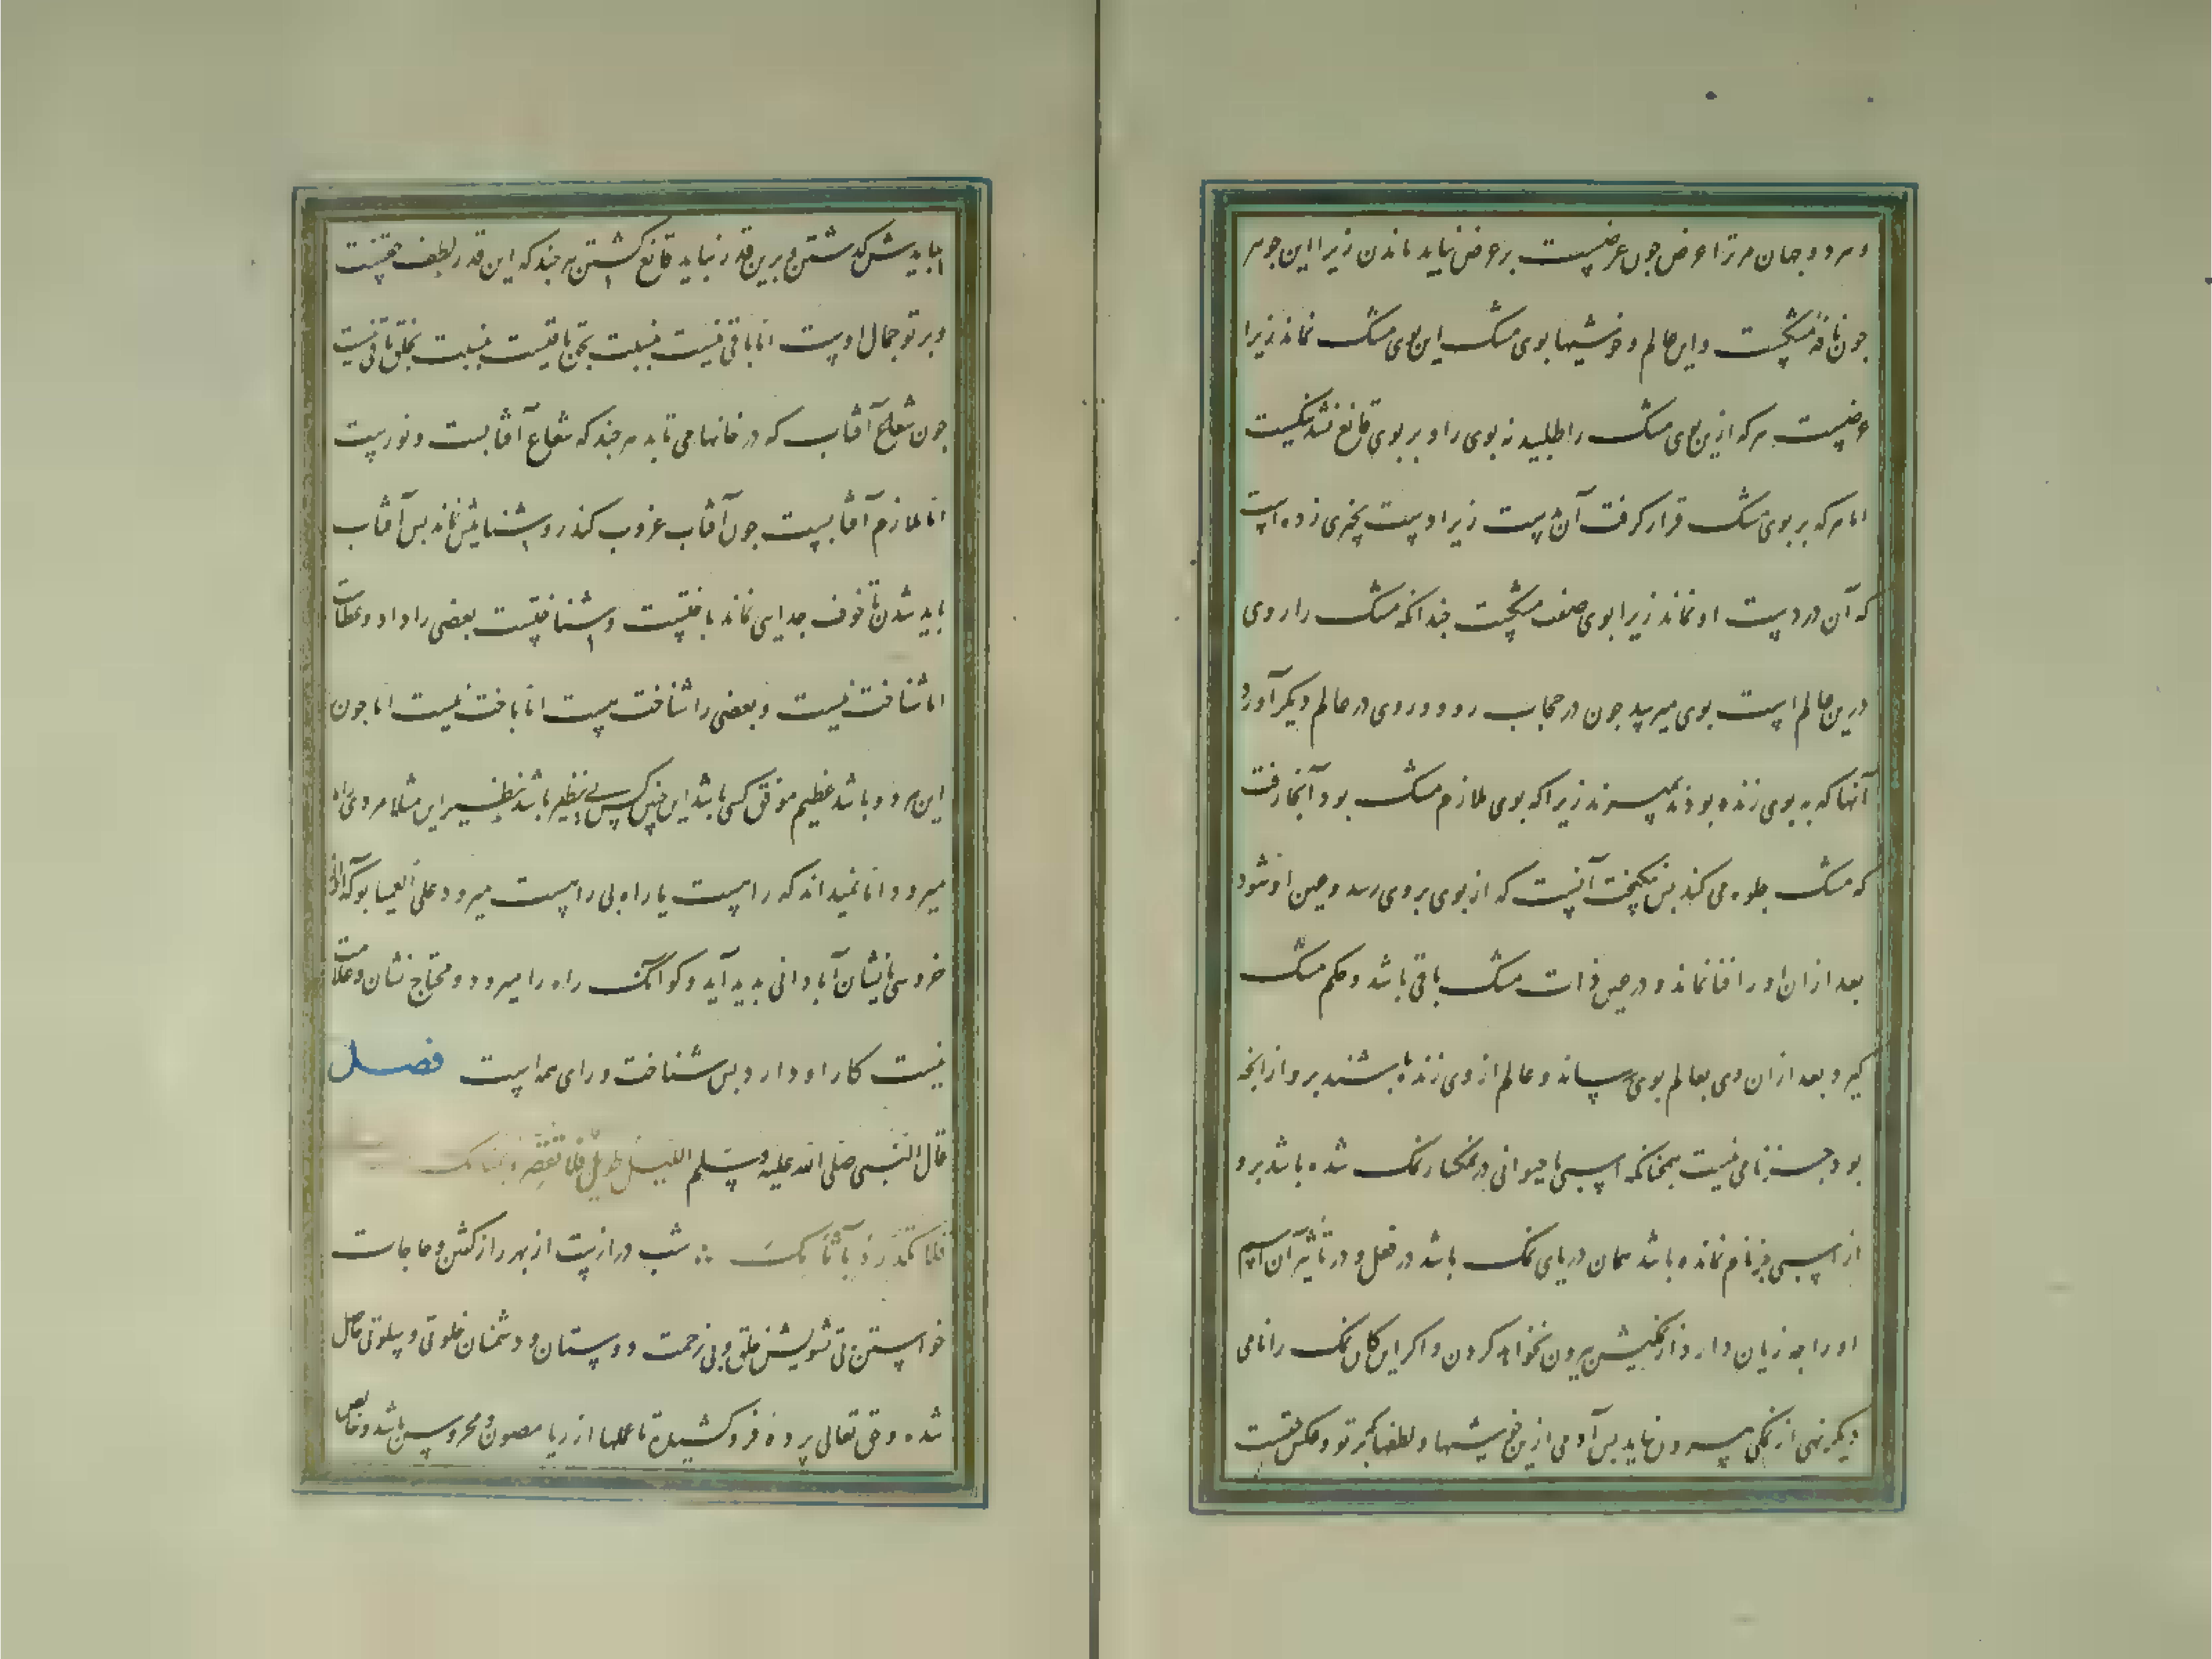 و هر دو جهان مر ترا عرض چون عرضیست بر عرض نباید ماندن زیرا این جوهر
جون نافهٔ مشکست و این عالم و خوشیها بوی مشک این بوی مشک نماند زیرا
عرضیست هر که ازین بوی مشک را طلبید نه بوی را و بر بوی قانع نشد نیکیست
اما هر که بر بوی مشک قرار گرفت آن بدست زیرا دست بچیزی زده است
که آن در دست او نماند زیرا بوی صفت مشکست چندانکه مشک را روی
درین عالم است بوی میرسد جون در حجاب رود و روی در عالم دیکر آورد
آنها که به بوی زنده بودند بمیرند زیرا که بوی ملازم مشک بود آنجا رفت
که مشک جلوه می کند بس نیکبخت آنست که از بوی بر وی رسد و عین او شود
بعد از ان او را فنا نماند و در عین ذات مشک باقی باشد و حکم مشک
کیرد و بعد از ان وی بعالم بوی رساند و عالم از وی زنده باشند برو از انچه
بود جز نامی نیست همچنانکه اسبی یا حیوانی در نمکسار نمک شده باشد برو
از اسبی جز نام نمانده باشد همان دریای نمک باشد در فعل و در تاثیر آن اسم
او را چه زیان دارد از نمکیش بیرون نخواهد کردن و اکر این کان نمک را نامی
دیکر نهی از نمکی بیرون نیاید بس آدمی ازین خوشیها و لطفها که پرتو و عکس حقست
ببایدش گذشتن و برین قدر نباید قانع گشتن هر چند که این قدر لطف حقست
و پرتو جمال اوست اما باقی نیست بنسبت بحق باقیست بنسبت بخلق باقی نیست
جون شعاع آفتاب که در خانها می تابد هر چند که شعاع آفتابست و نورست
اما ملازم آفتابست جون آفتاب غروب کند روشنایش نماند بس آفتاب
باید شدن تا خوف جدایی نماند باختست و شناختست بعضی را داد و عطاست
اما شناخت نیست و بعضی را شناخت هست اما باخت نیست اما جون
این هر دو باشد عظیم موفق کسی باشد این چنین کس بی نظیر باشد نظیر این مثلا مردی راه
میرود اما نمیداند که این راهست یا بی راهیست میرود علی العمیا بوک آواز
خروسی یا نشان آبادانی بدید آید و کو آنک راه را میرود و محتاج نشان و علامت
نیست کار او دارد بس شناخت ورای همه است فصل
قال النبی صلی الله علیه وسلم اللیل طویل فلا تقصره بمنامک
فلا تکدره بآثامک شب درازست از بهر راز گفتن و حاجات
خواستن بی تشویش خلق و بی زحمت دوستان و دشمنان خلوتی و سلوتی حاصل
شده و حق تعالی پرده فرو کشیده تا عملها از ریا مصون و محروس باشد و خالص